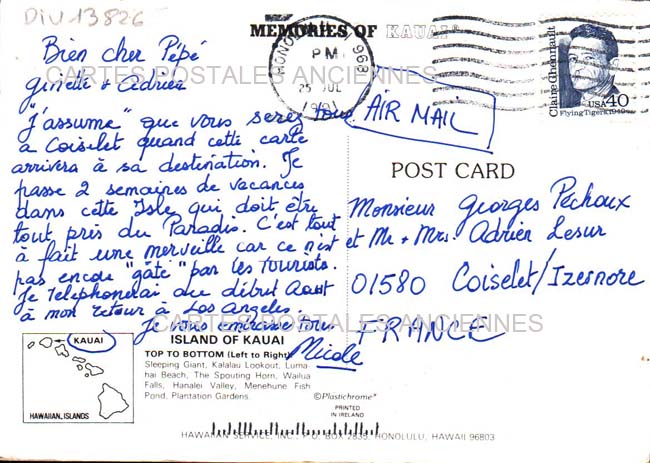 DIV13826
MEMORIES OF KAUAI
HONOLULU, HI 968
PM
25 JUL
1991
Claire Chennault
USA 40
Flying Tigers, 1940s
Bien cher Pépé
Ginette + Adrien
CARTES POSTALES ANCIENNES
"J'assume" que vous serez tous
a Coiselet quand cette carte
arrivera à sa destination. Je
passe 2 semaines de vacances
dans cette Isle qui doit être
tout près du Paradis. C'est tout
à fait une merveille car ce n'est
pas encore "gâté" par les Tourists.
Je Telephonerai au début Aout
à mon retour à Los Angeles.
Je vous embrasse Tous
Nicole
AIR MAIL
POST CARD
Monsieur Georges Péchoux
et Mr + Mrs. Adrien Lesur
01580 Coiselet/Izernore
FRANCE
CARTES POSTALES ANCIENNES
KAUAI
HAWAIIAN, ISLANDS
ISLAND OF KAUAI
TOP TO BOTTOM (Left to Right)
Sleeping Giant, Kalalau Lookout, Luma-
hai Beach, The Spouting Horn, Wailua
Falls, Hanalei Valley, Menehune Fish
Pond, Plantation Gardens.
©Plastichrome®
PRINTED
IN IRELAND
HAWAIIAN SERVICE, INC., P.O. BOX 2835, HONOLULU, HAWAII 96803